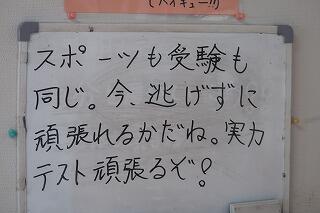 (ハイキュー!!)
スポーツも受験も
同じ。今、逃げずに
頑張れるかだね。実力
テスト頑張るぞ!